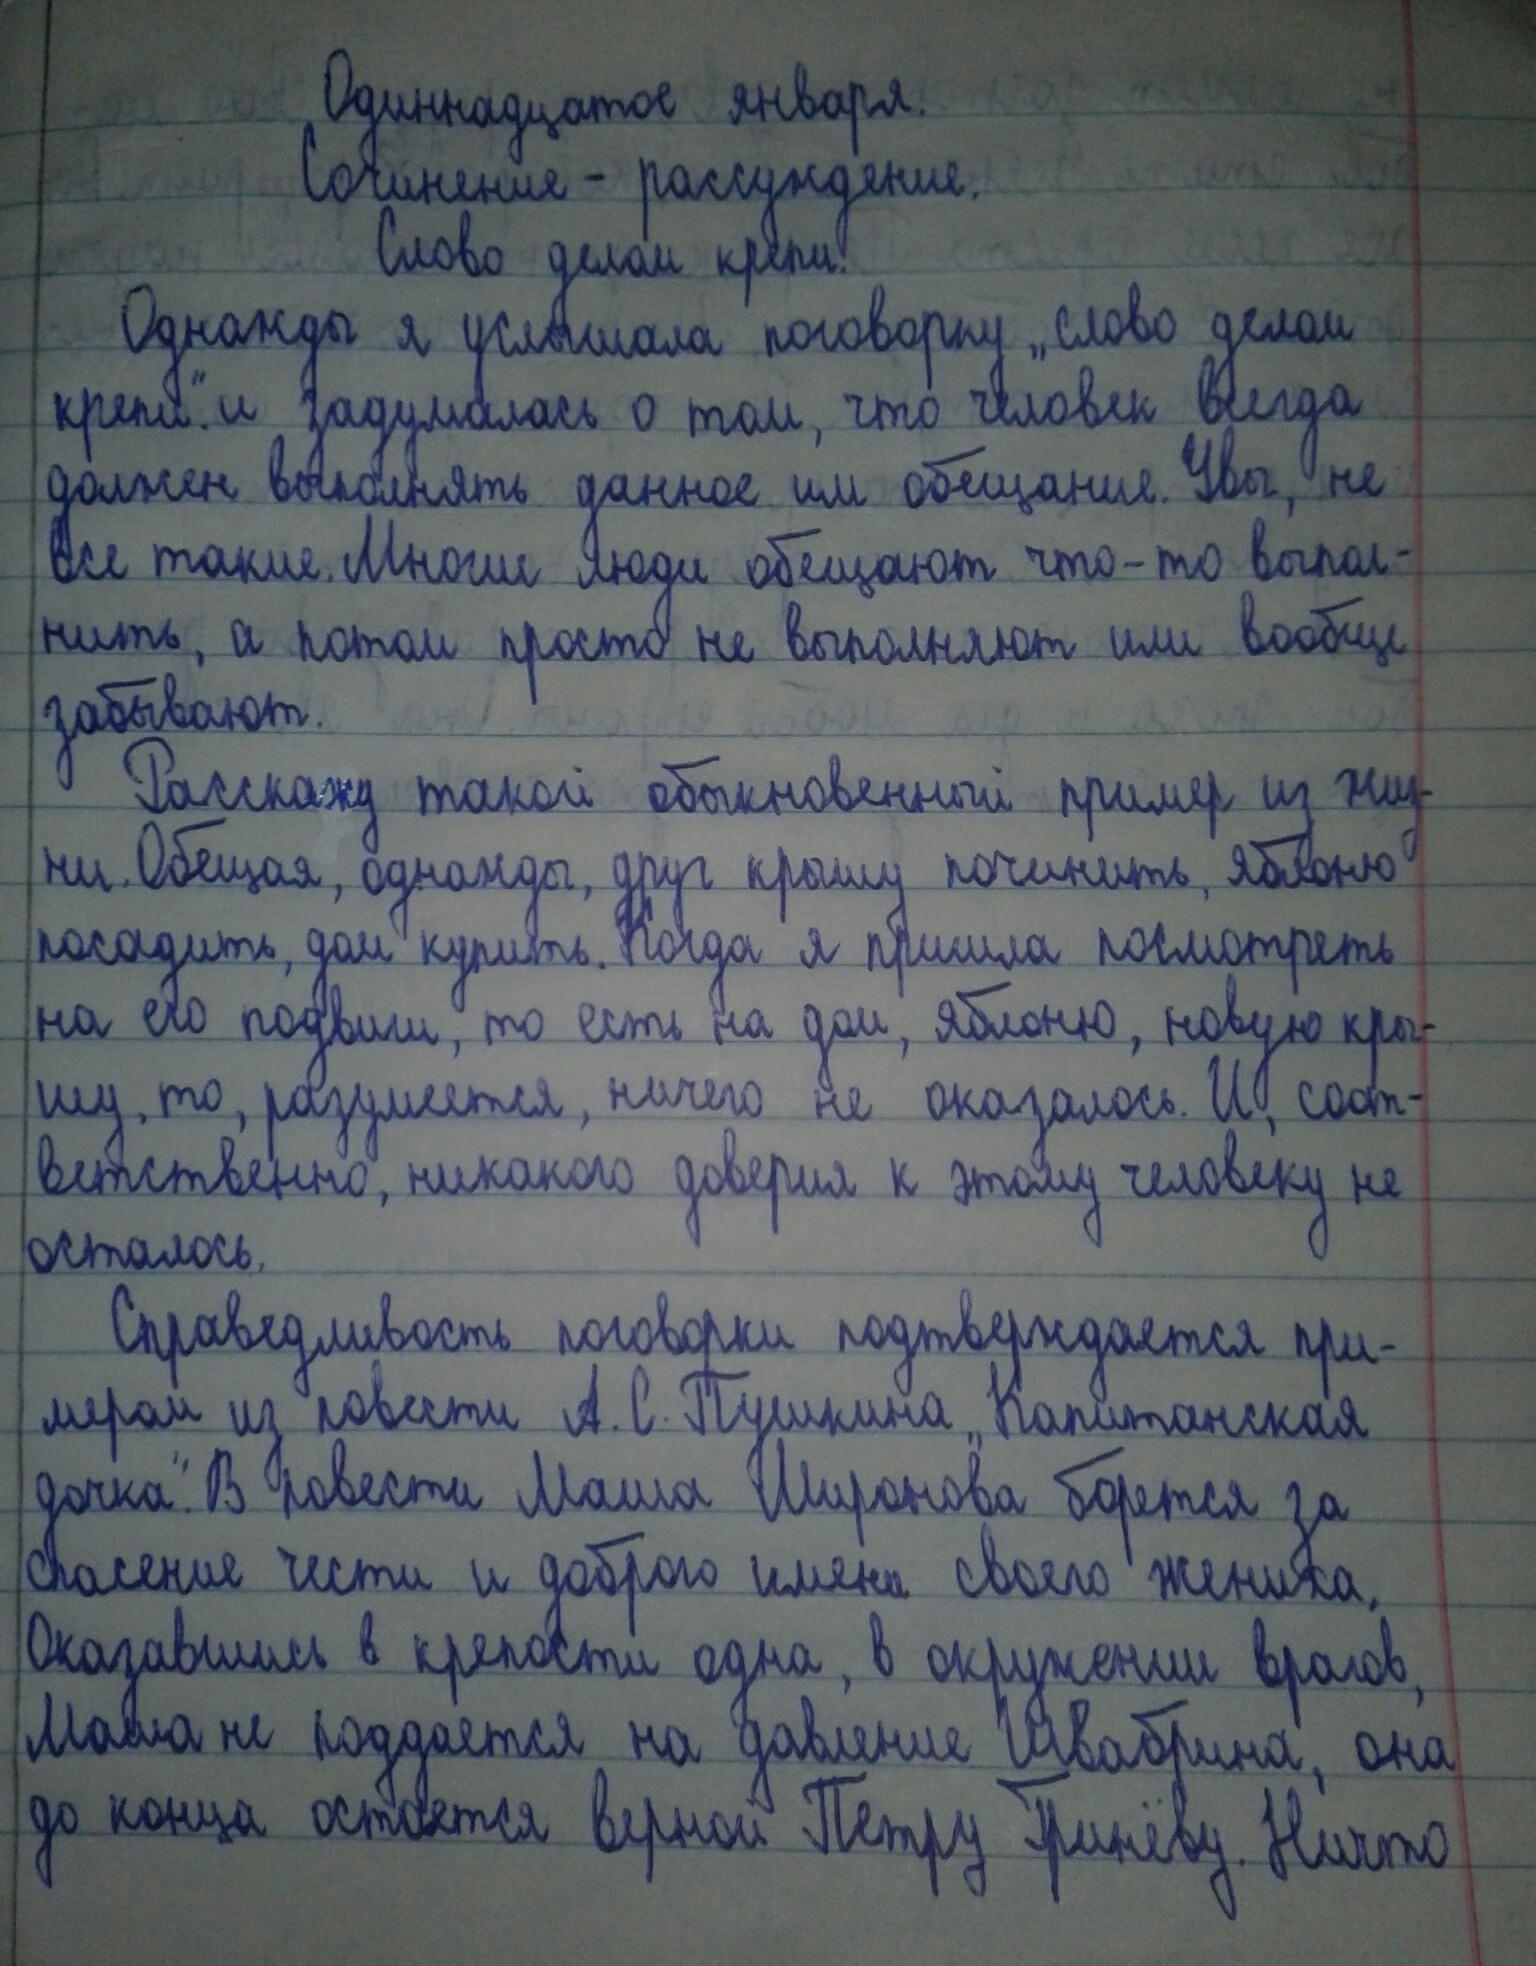 Одиннадцатое января.
Сочинение - рассуждение.
Слово делом крепи!
Однажды я услышала поговорку „слово делом
крепи". и задумалась о том, что человек всегда
должен выполнять данное им обещание. Увы, не
все такие. Многие люди обещают что-то выпол-
нить, а потом просто не выполняют или вообще
забывают.
Расскажу такой обыкновенный пример из жиз-
ни. Обещая, однажды, друг крышу починить, яблоню
посадить, дом купить. Когда я пришла посмотреть
на его подвиги, то есть на дом, яблоню, новую кры-
шу, то, разумеется, ничего не оказалось. И, соот-
ветственно, никакого доверия к этому человеку не
осталось.
Справедливость поговорки подтверждается при-
мером из повести А.С. Пушкина „Капитанская
дочка". В повести Маша Миронова борется за
спасение чести и доброго имени своего жениха.
Оказавшись в крепости одна, в окружении врагов,
Маша не поддается на давление Швабрина, она
до конца остается верной Петру Гринёву. Ничто